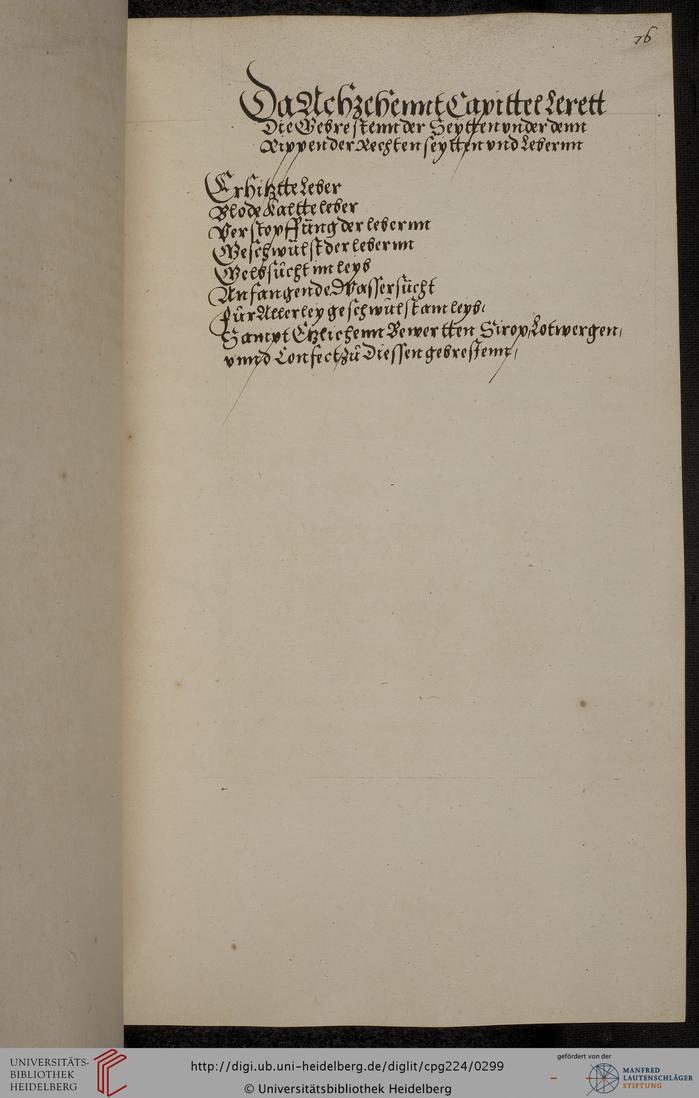 76
Da Achzehennt Capittel Lerett
Die Gebrestenn der Seytten vnder denn
Rippen der Rechten seytten vnd Lebernn
Erhitztte Leber
Blode Kaltte leber
Verstopffung der lebernn
Geschwùlst der lebernn
Gelbsùcht im leyb
Anfangende Wassersùcht
Fùr Allerley geschwùlst am leyb/
Sampt Etzlichenn Bewertten Sirop, Lotwergen/
vnnd Confect zù Diessen gebrestenn/
UNIVERSITÄTS-
BIBLIOTHEK
HEIDELBERG
http://digi.ub.uni-heidelberg.de/diglit/cpg224/0299
© Universitätsbibliothek Heidelberg
gefördert von der
MANFRED
LAUTENSCHLÄGER
STIFTUNG